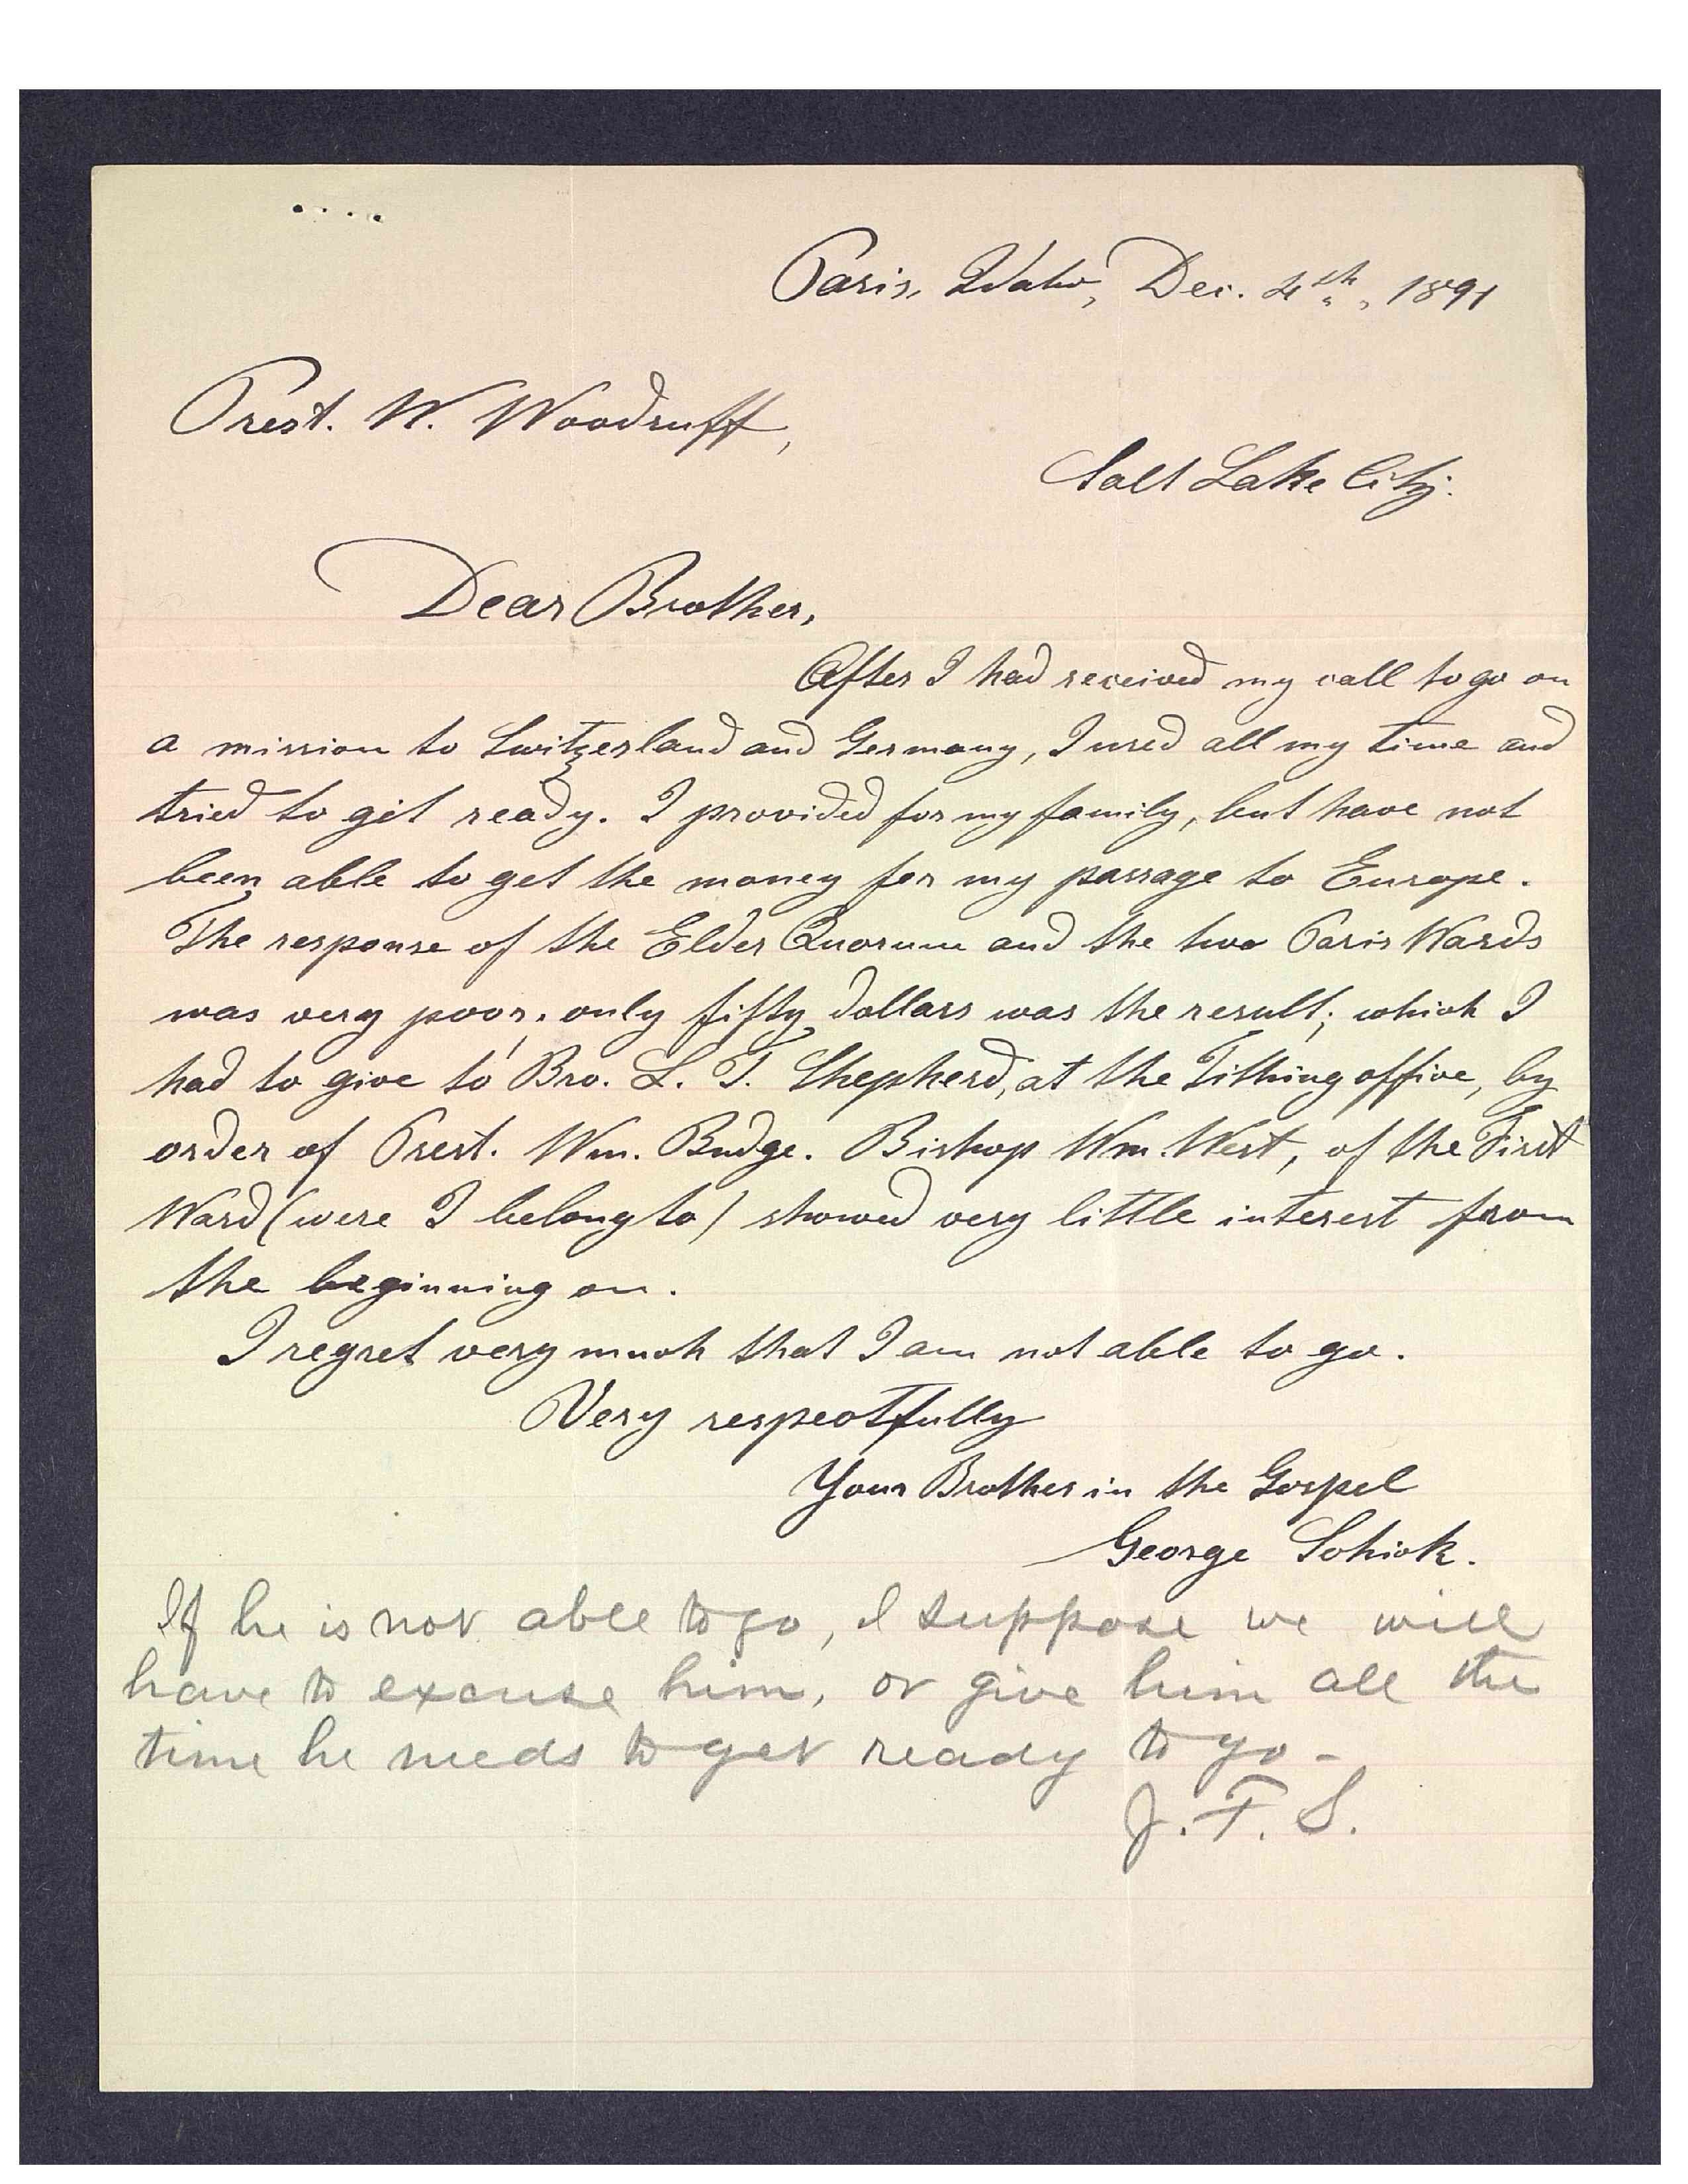 Paris, Idaho, Dec. 4th, 1891
Prest. W. Woodruff,
Salt Lake City.
Dear Brother,
After I had received my call to go on
a mission to Switzerland and Germany, I used all my time and
tried to get ready. I provided for my family, but have not
been able to get the money for my passage to Europe.
The response of the Elder Quorum and the two Paris Wards
was very poor, only fifty dollars was the result; which I
had to give to Bro. L. T. Shepherd, at the Tithing office, by
order of Prest. Wm. Budge. Bishop Wm. West, of the First
Ward (were I belong to) showed very little interest from
the beginning on.
I regret very much that I am not able to go.
Very respectfully
Your Brother in the Gospel
George Schick.
If he is not able to go, I suppose we will
have to excuse him, or give him all the
time he needs to get ready to go -
J. F. S.